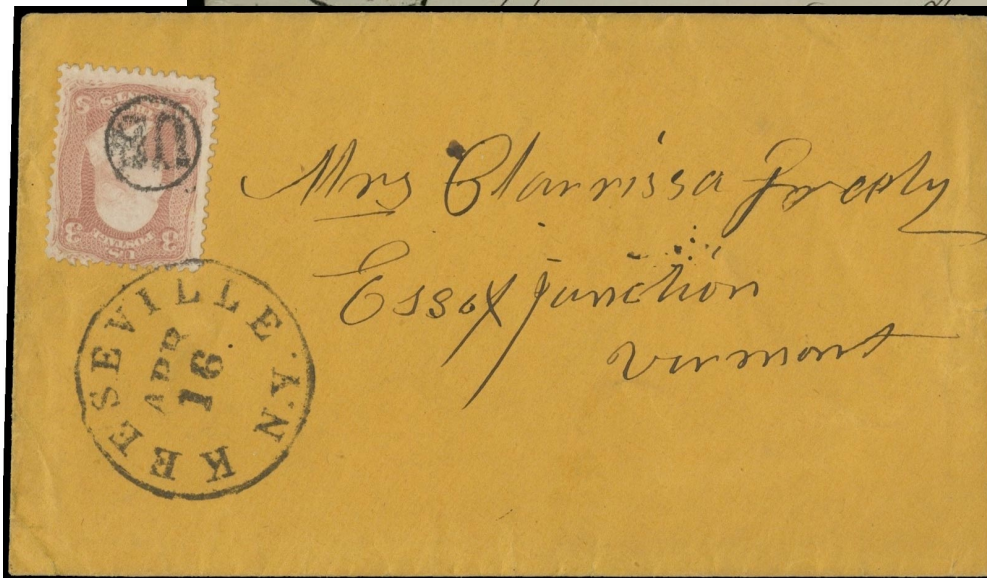 U.S. POSTAGE
3 3
US
KEESEVILLE. N.Y.
APR
16
Mrs Clarrissa Freely
Essex junction
Vermont